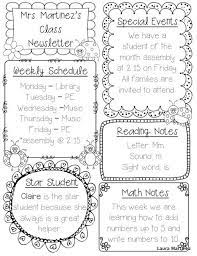 Mrs. Martinez's
Class
Newsletter
Weekly Schedule
Monday - Library
Tuesday - PE
Wednesday -Music
Thursday - PE
Friday -
assembly @ 2:15
Star Student
Claire is the star
student because she
always is a great
helper.
Special Events
We have a
student of the
month assembly
at 2:15 on Friday.
All families are
invited to attend.
Reading Notes
Letter: Mm
Sound: m
Sight word: is
Math Notes
This week we are
learning how to add
numbers up to 3 and
write numbers to 10.
Laura Martinez